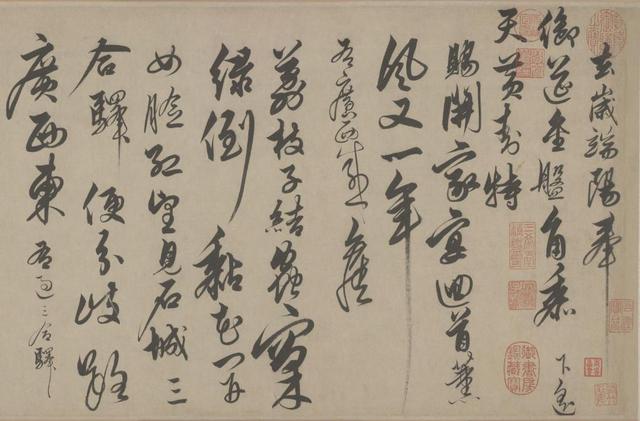 去歲端陽奉
御筵金盤角黍下遙
天黃封特
賜開家宴迴首薰
風又一年
右廣西
荔枝子結蟲窠
綠倒黏花開
女臉紅望見石城三
合驛便分岐路
廣西東 右過三合驛